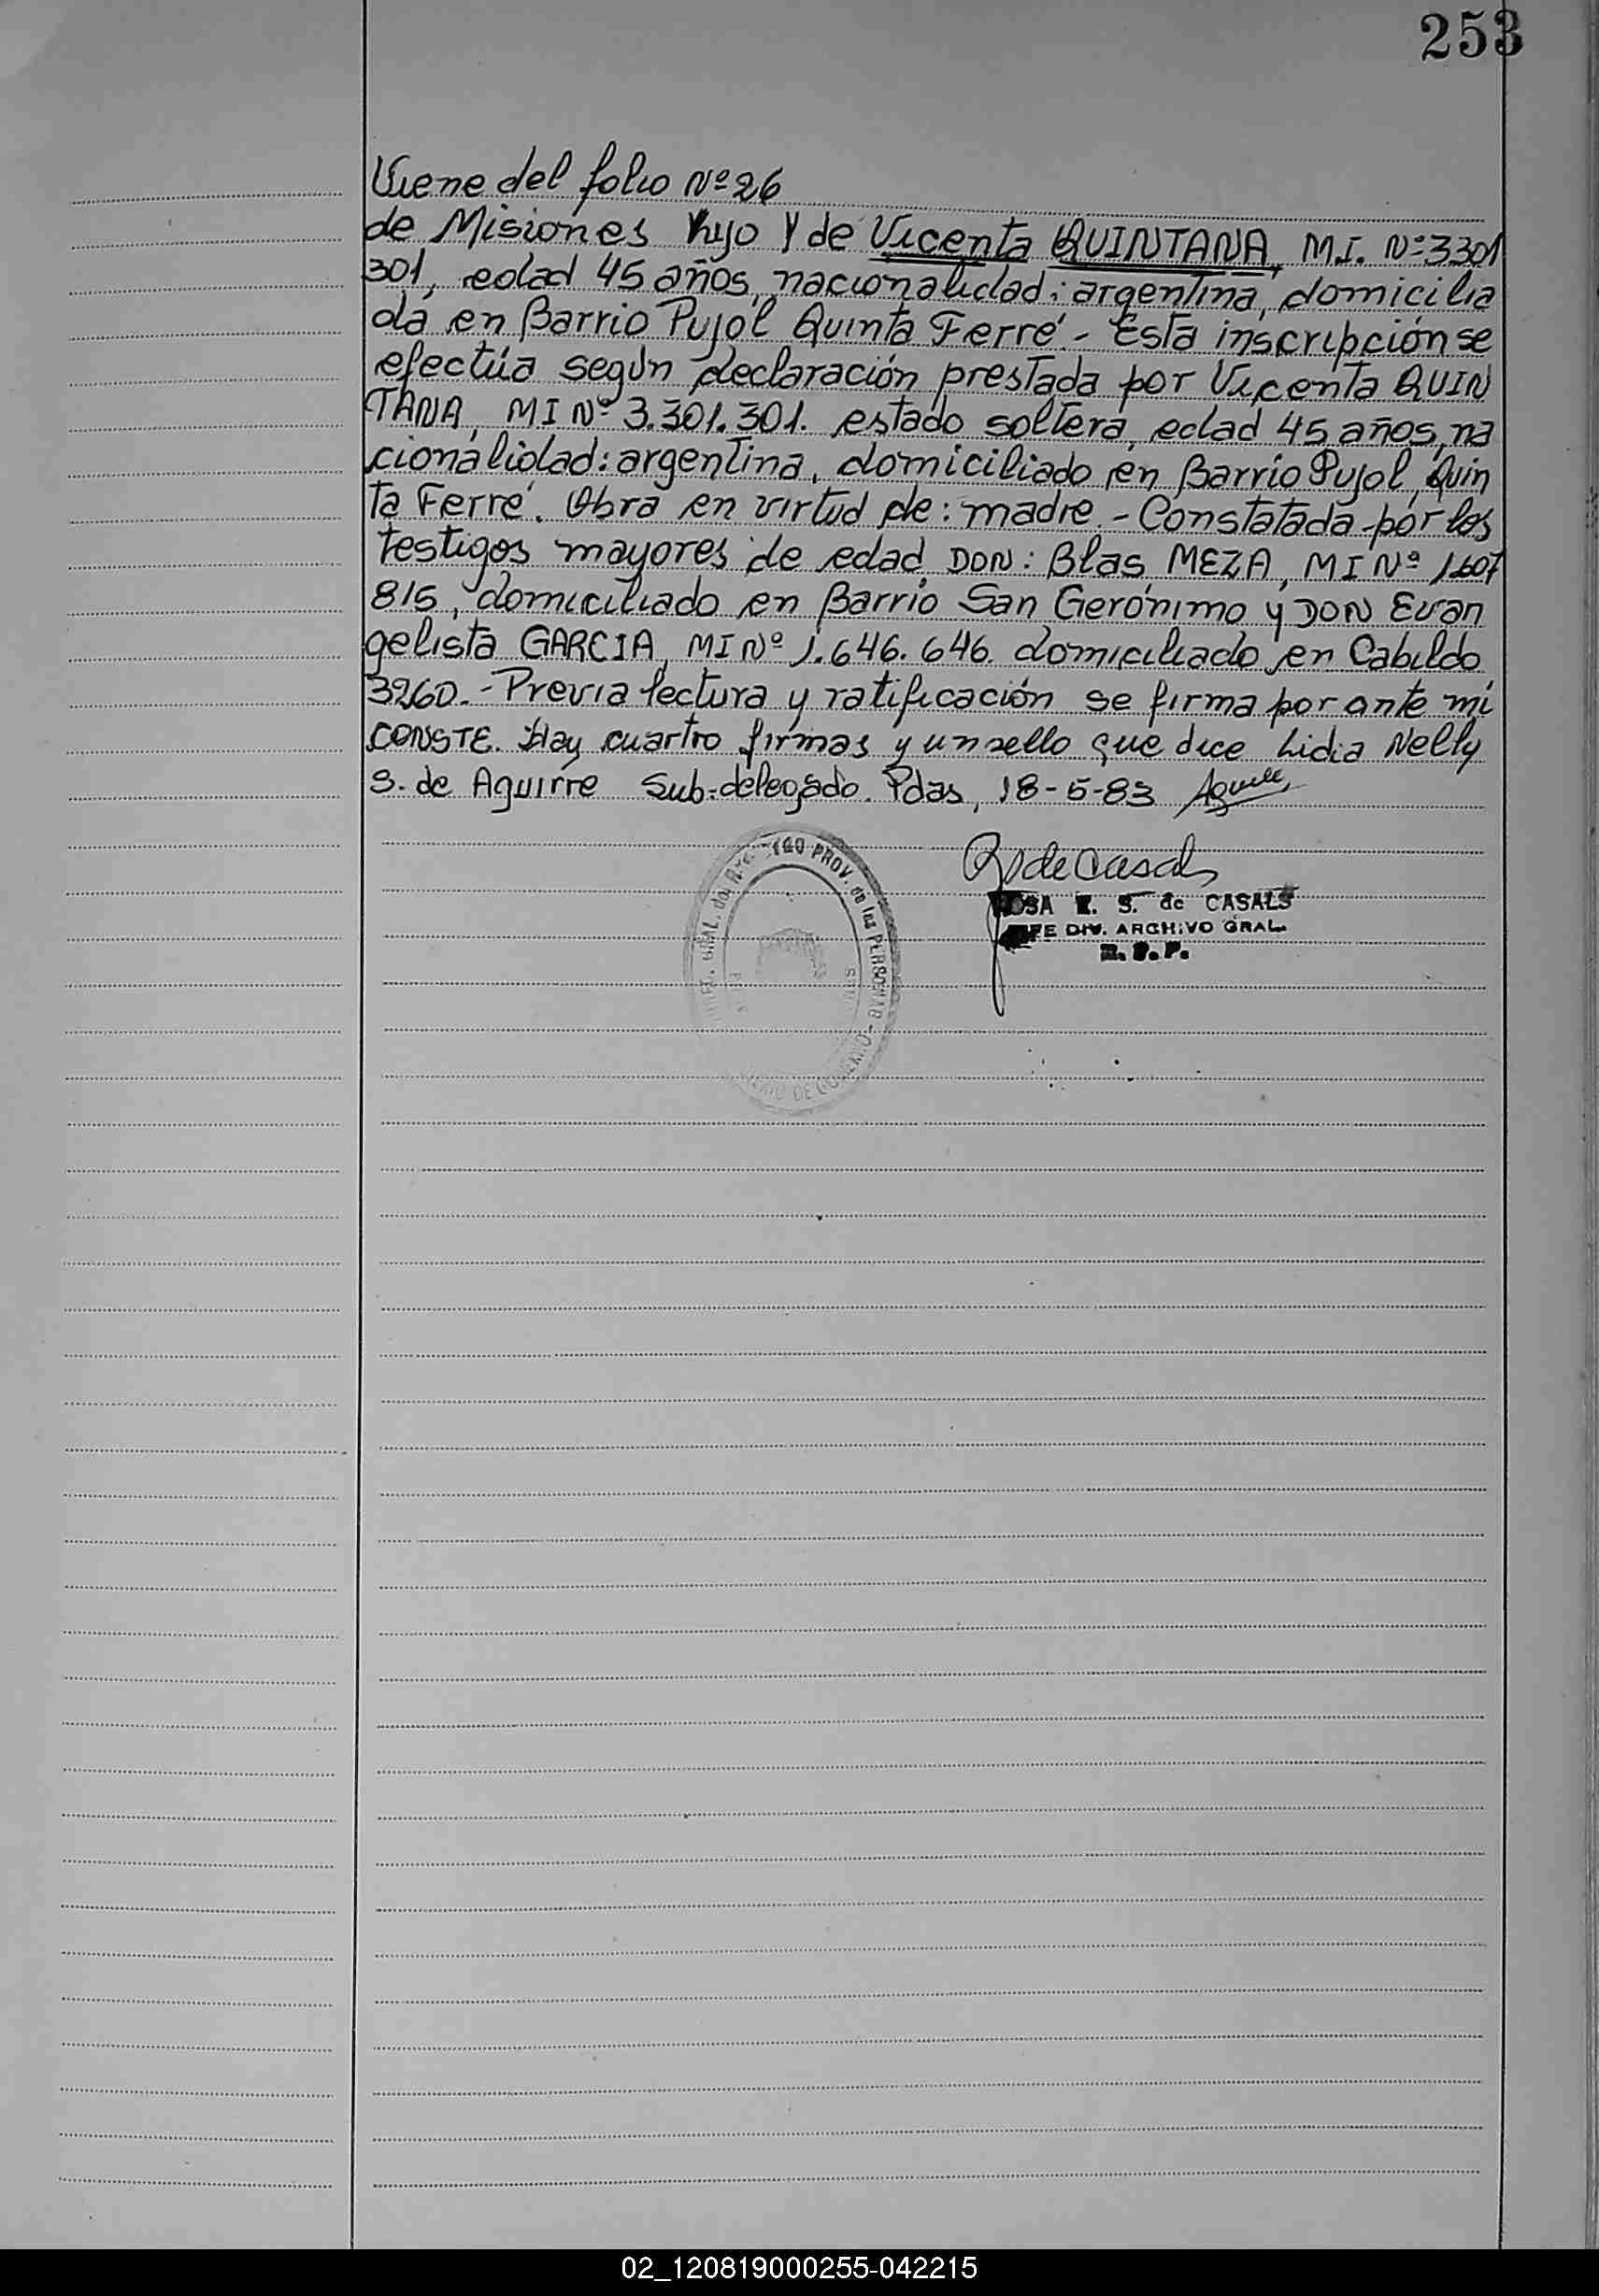 253
Viene del folio Nº 26
de Misiones hijo Y de Vicenta QUINTANA, M.I. Nº 3301
301, edad 45 años, nacionalidad: argentina, domicilia
da en Barrio Pujol Quinta Ferré.- Esta inscripción se
efectúa según declaración prestada por Vicenta QUIN
TANA, MI Nº 3.301.301. estado soltera, edad 45 años, na
cionalidad: argentina, domiciliado en Barrio Pujol, Quin
ta Ferré. Obra en virtud de: madre.- Constatada por los
testigos mayores de edad DON: Blas MEZA, MI Nº 1607
815, domiciliado en Barrio San Gerónimo y DON Evan
gelista GARCIA, MI Nº 1.646.646. domiciliado en Cabildo
3260.- Previa lectura y ratificación se firma por ante mi
CONSTE. Hay cuartro firmas y un sello que dice Lidia Nelly
S. de Aguirre Sub-delegado. Pdas, 18-5-83
R S de Casals
ROSA E. S. de CASALS
JEFE DIV. ARCHIVO GRAL.
R. P. P.
GRAL. del PROV. de las PERSONAS
DE GOBIERNO
02_120819000255-042215